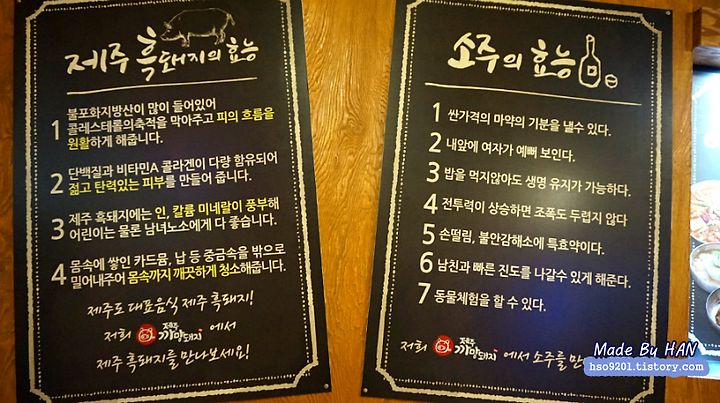 제주 흑돼지의 효능
1 불포화지방산이 많이 들어있어
콜레스테롤의축적을 막아주고 피의 흐름을
원활하게 해줍니다.
2 단백질과 비타민A 콜라겐이 다량 함유되어
젊고 탄력있는 피부를 만들어 줍니다.
3 제주 흑돼지에는 인, 칼륨 미네랄이 풍부해
어린이는 물론 남녀노소에게 다 좋습니다.
4 몸속에 쌓인 카드뮴, 납 등 중금속을 밖으로
밀어내주어 몸속까지 깨끗하게 청소해줍니다.
제주도 대표음식 제주 흑돼지!
저희 제주 까망돼지 에서
제주 흑돼지를 만나보세요!
소주의 효능
1 싼가격의 마약의 기분을 낼수 있다.
2 내앞에 여자가 예뻐 보인다.
3 밥을 먹지않아도 생명 유지가 가능하다.
4 전투력이 상승하면 조폭도 두렵지 않다
5 손떨림, 불안감해소에 특효약이다.
6 남친과 빠른 진도를 나갈수 있게 해준다.
7 동물체험을 할 수 있다.
저희 제주 까망돼지 에서 소주를 만
Made By HAN
hso9201.tistory.com